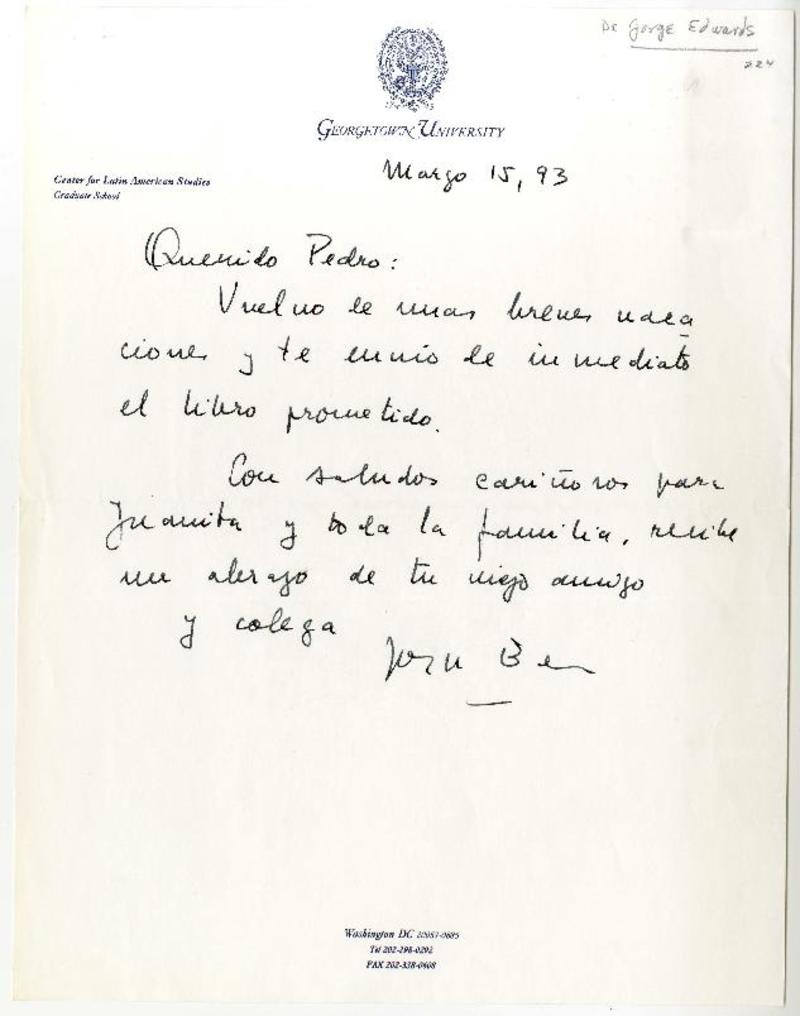 De Jorge Edwards
224
GEORGETOWN UNIVERSITY
Center for Latin American Studies
Graduate School
Marzo 15, 93
Querido Pedro:
Vuelvo de unas breves vaca
ciones y te envío de inmediato
el libro prometido.
Con saludos cariñosos para
Juanita y toda la familia, recibe
un abrazo de tu viejo amigo
y colega
Washington DC 20057-0685
Tel 202-298-0292
FAX 202-338-0608